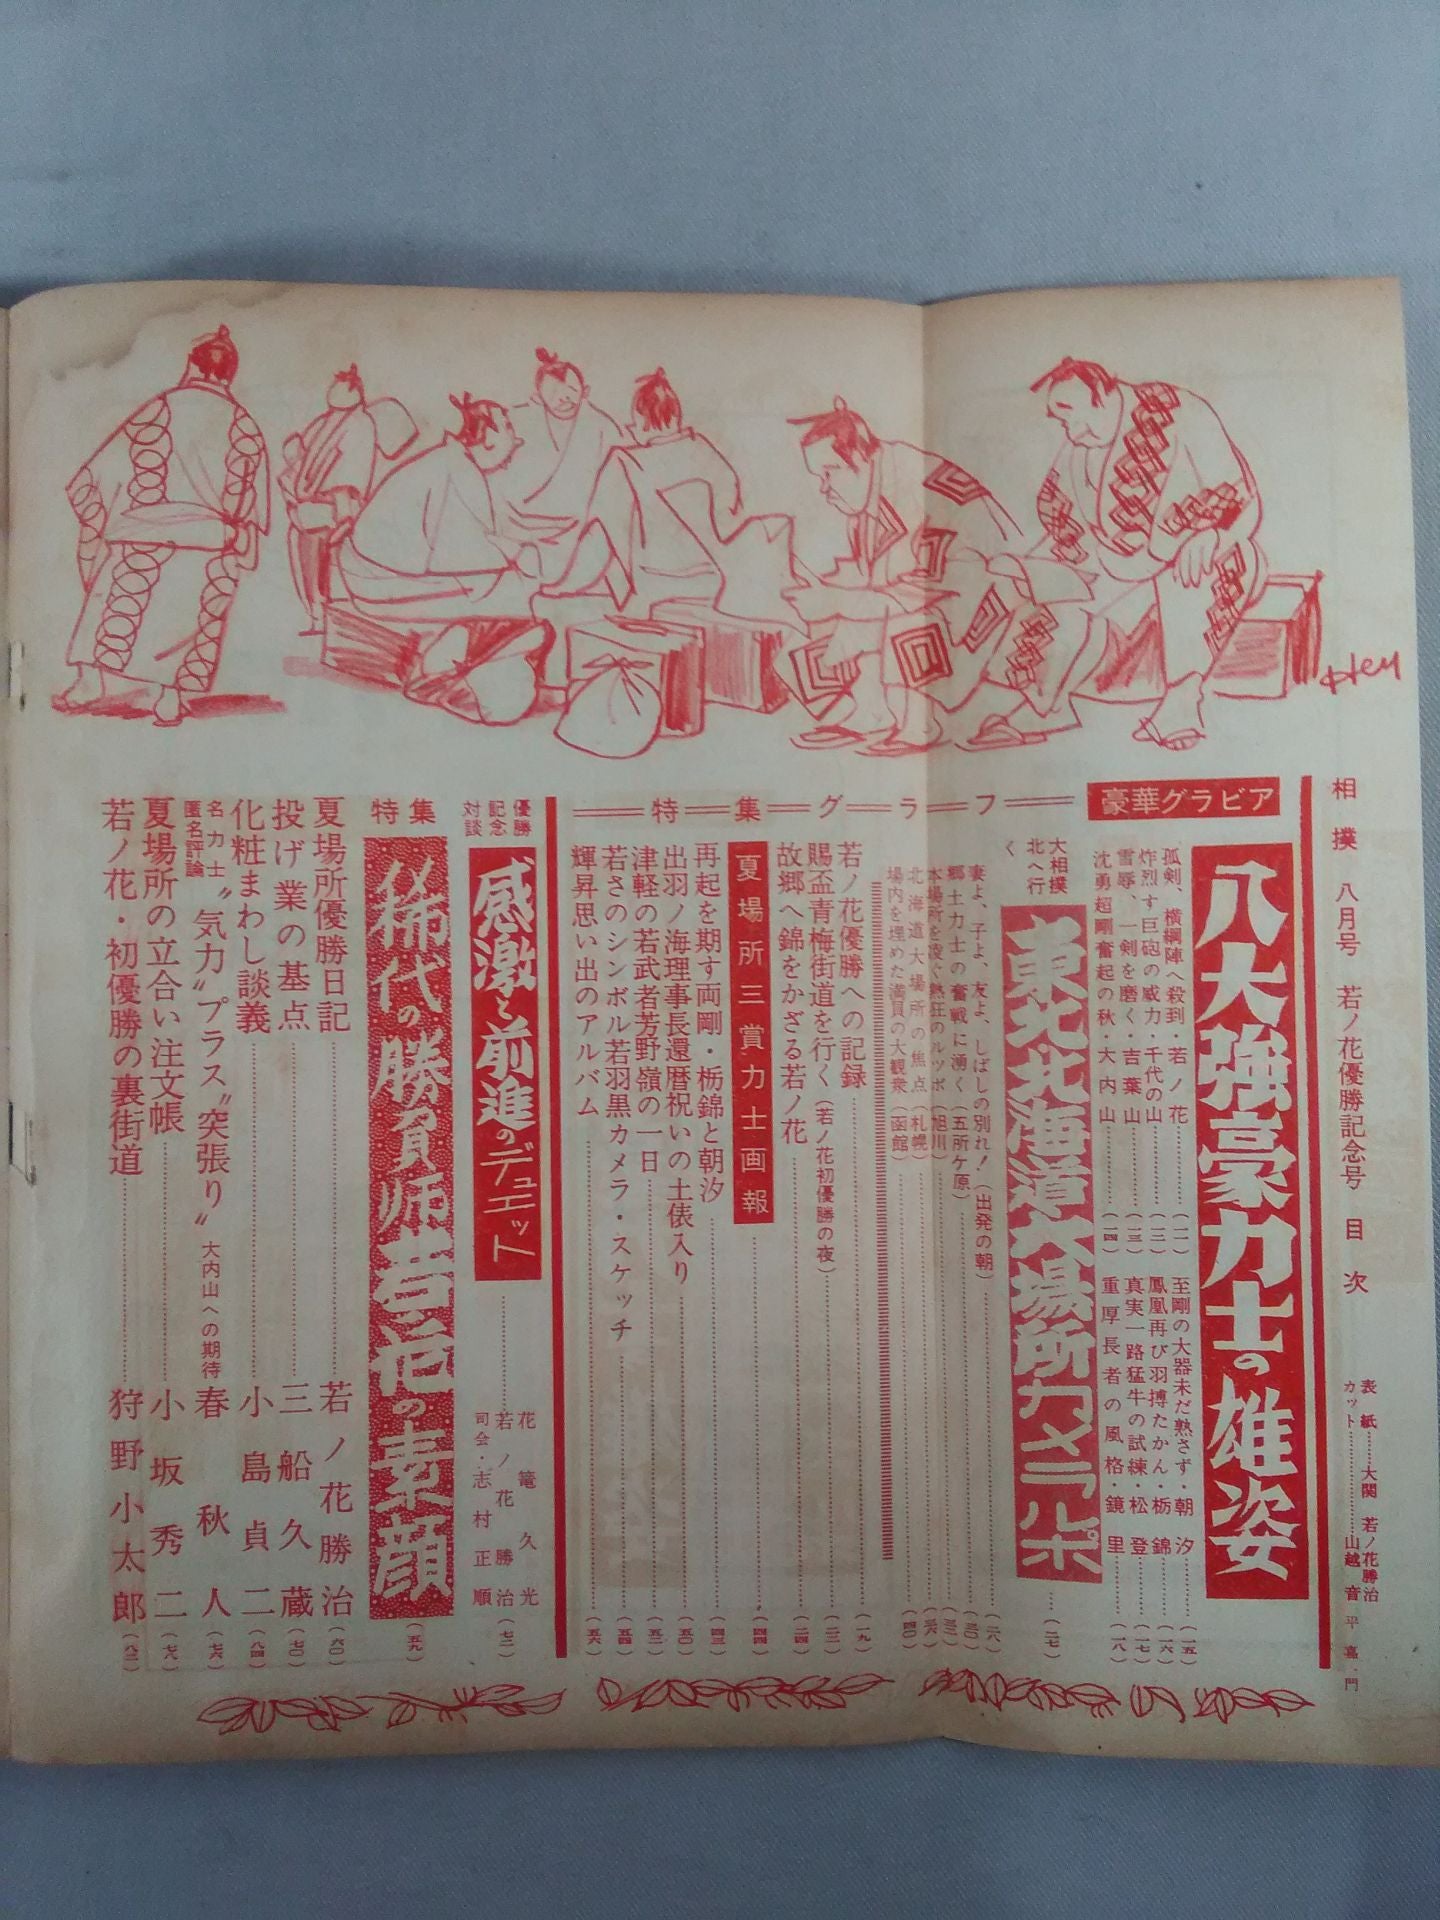 相撲 八月号 若ノ花優勝記念号 目次
表紙……大関 若ノ花勝治
カット……山越音平
嘉門
豪華グラビア
八大強豪力士の雄姿
孤剣、横綱陣へ殺到・若ノ花……(一一)
炸烈す巨砲の威力・千代の山……(一二)
雪辱、一剣を磨く・吉葉山……(一三)
沈勇超剛奮起の秋・大内山……(一四)
至剛の大器未だ熟さず・朝汐……(一五)
鳳凰再び羽搏たかん・栃錦……(一六)
真実一路猛牛の試練・松登……(一七)
重厚長者の風格・鏡里……(一八)
大相撲北へ行く
東北北海道大場所カメラルポ……(二七)
妻よ、子よ、友よ、しばしの別れ!(出発の朝)……(二八)
郷土力士の奮戦に湧く(五所ケ原)……(三〇)
本場所を凌ぐ熱狂のルツボ(旭川)……(三二)
北海道大場所の焦点(札幌)……(三六)
場内を埋めた満員の大観衆(函館)……(四〇)
特集グラフ
若ノ花優勝への記録……(一九)
賜盃青梅街道を行く(若ノ花初優勝の夜)……(二二)
故郷へ錦をかざる若ノ花……(二四)
夏場所三賞力士画報……(四四)
再起を期す両剛・栃錦と朝汐……(四三)
出羽ノ海理事長還暦祝いの土俵入り……(五〇)
津軽の若武者芳野嶺の一日……(五二)
若さのシンボル若羽黒カメラ・スケッチ……(五四)
輝昇思い出のアルバム……(五六)
優勝記念対談
感激と前進のデュエット……
花篭久光
若ノ花勝治
司会・志村正順
(七二)
特集
稀代の勝負師若ノ花の素顔
(五九)
夏場所優勝日記……若ノ花勝治(六〇)
投げ業の基点……三船久蔵(七〇)
化粧まわし談義……小島貞二(八四)
名力士匿名評論〝気力〟プラス〝突張り〟大内山への期待 春秋人(七六)
夏場所の立合い注文帳……小坂秀二(七八)
若ノ花・初優勝の裏街道……狩野小太郎(八二)